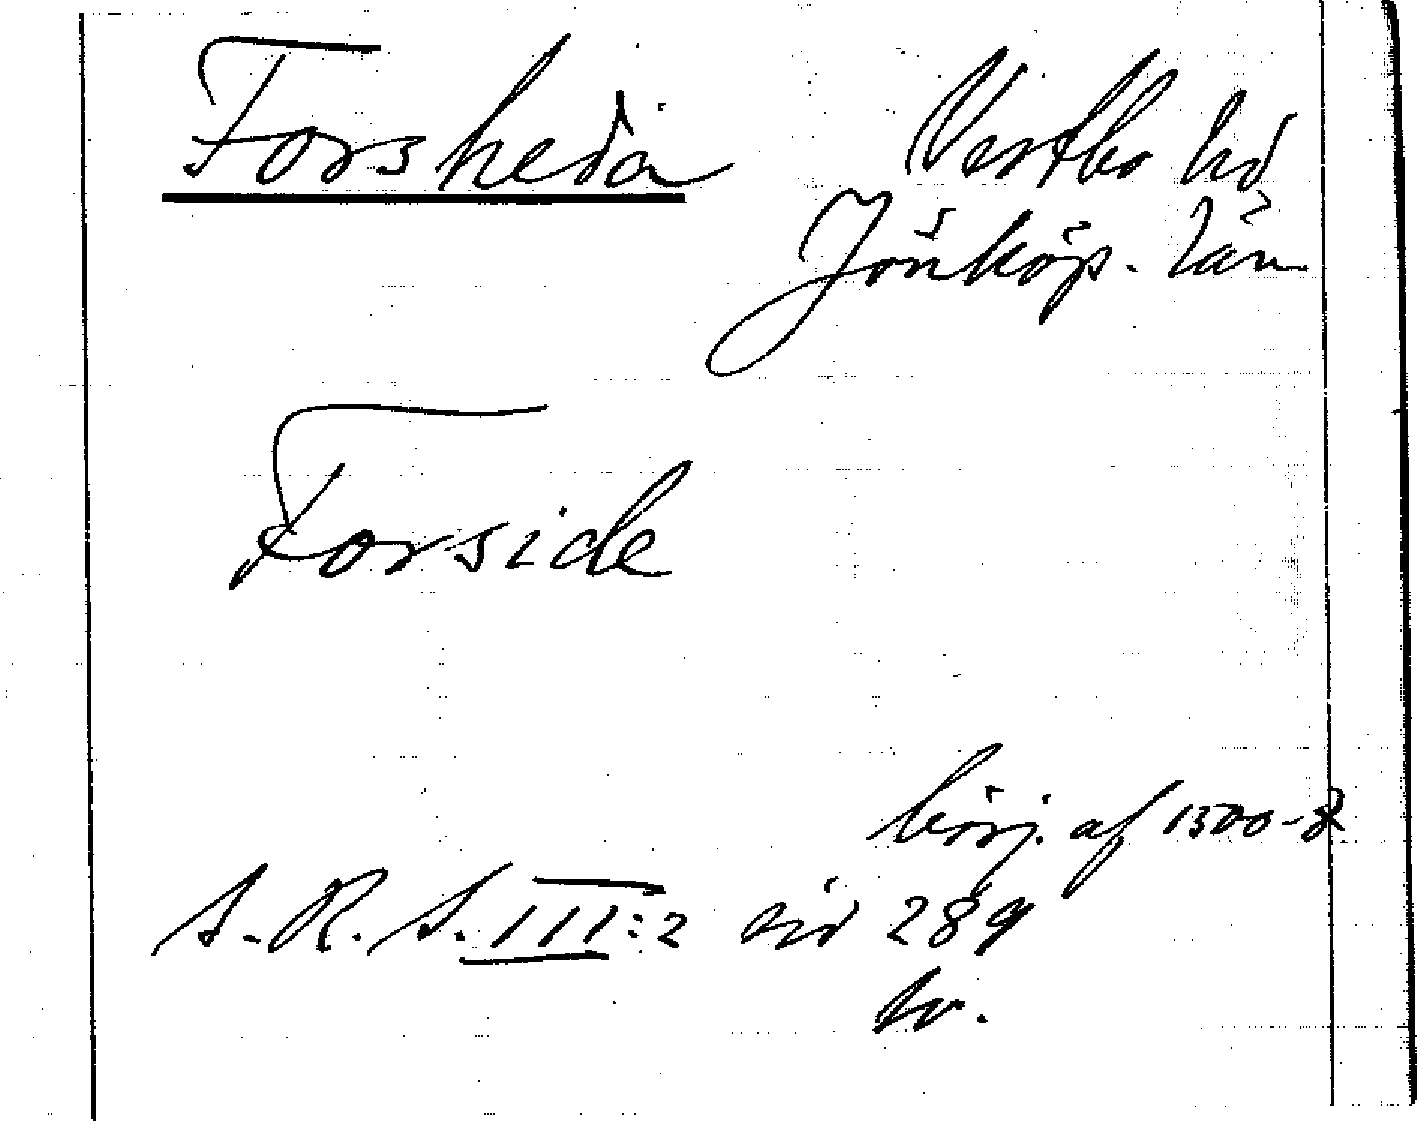 Forsheda
Vestbo hd
Jönköp. län
Forside
börj. af 1500-t
S. R. S. III:2 sid 289
tr.